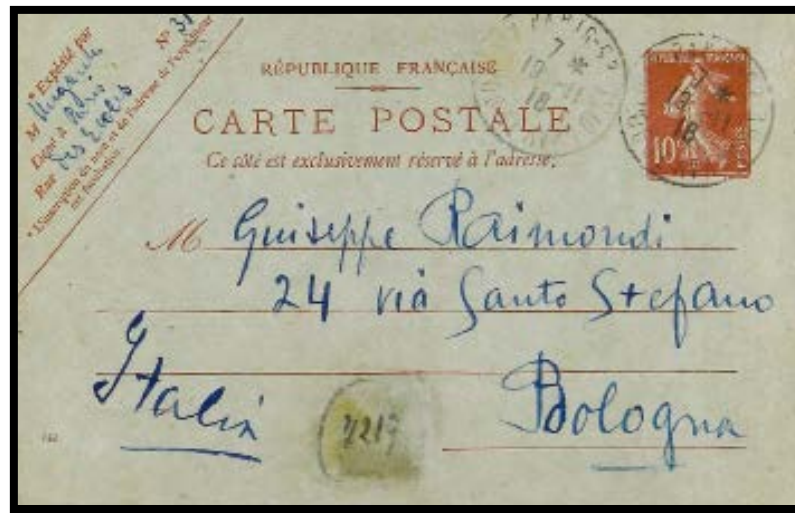 * Expédié par Nº 31
M Ungaretti
Demt à Paris
Rue des Ecoles
* L'inscription du nom et de l'adresse de l'expéditeur
est facultative.
PARIS
7 *
19 -11
18
RÉPUBLIQUE FRANÇAISE
CARTE POSTALE
Ce côté est exclusivement réservé à l'adresse.
10
POSTES
7 *
18
M Guiseppe Raimondi
24 via Santo Stefano
Italia
Bologna
4217